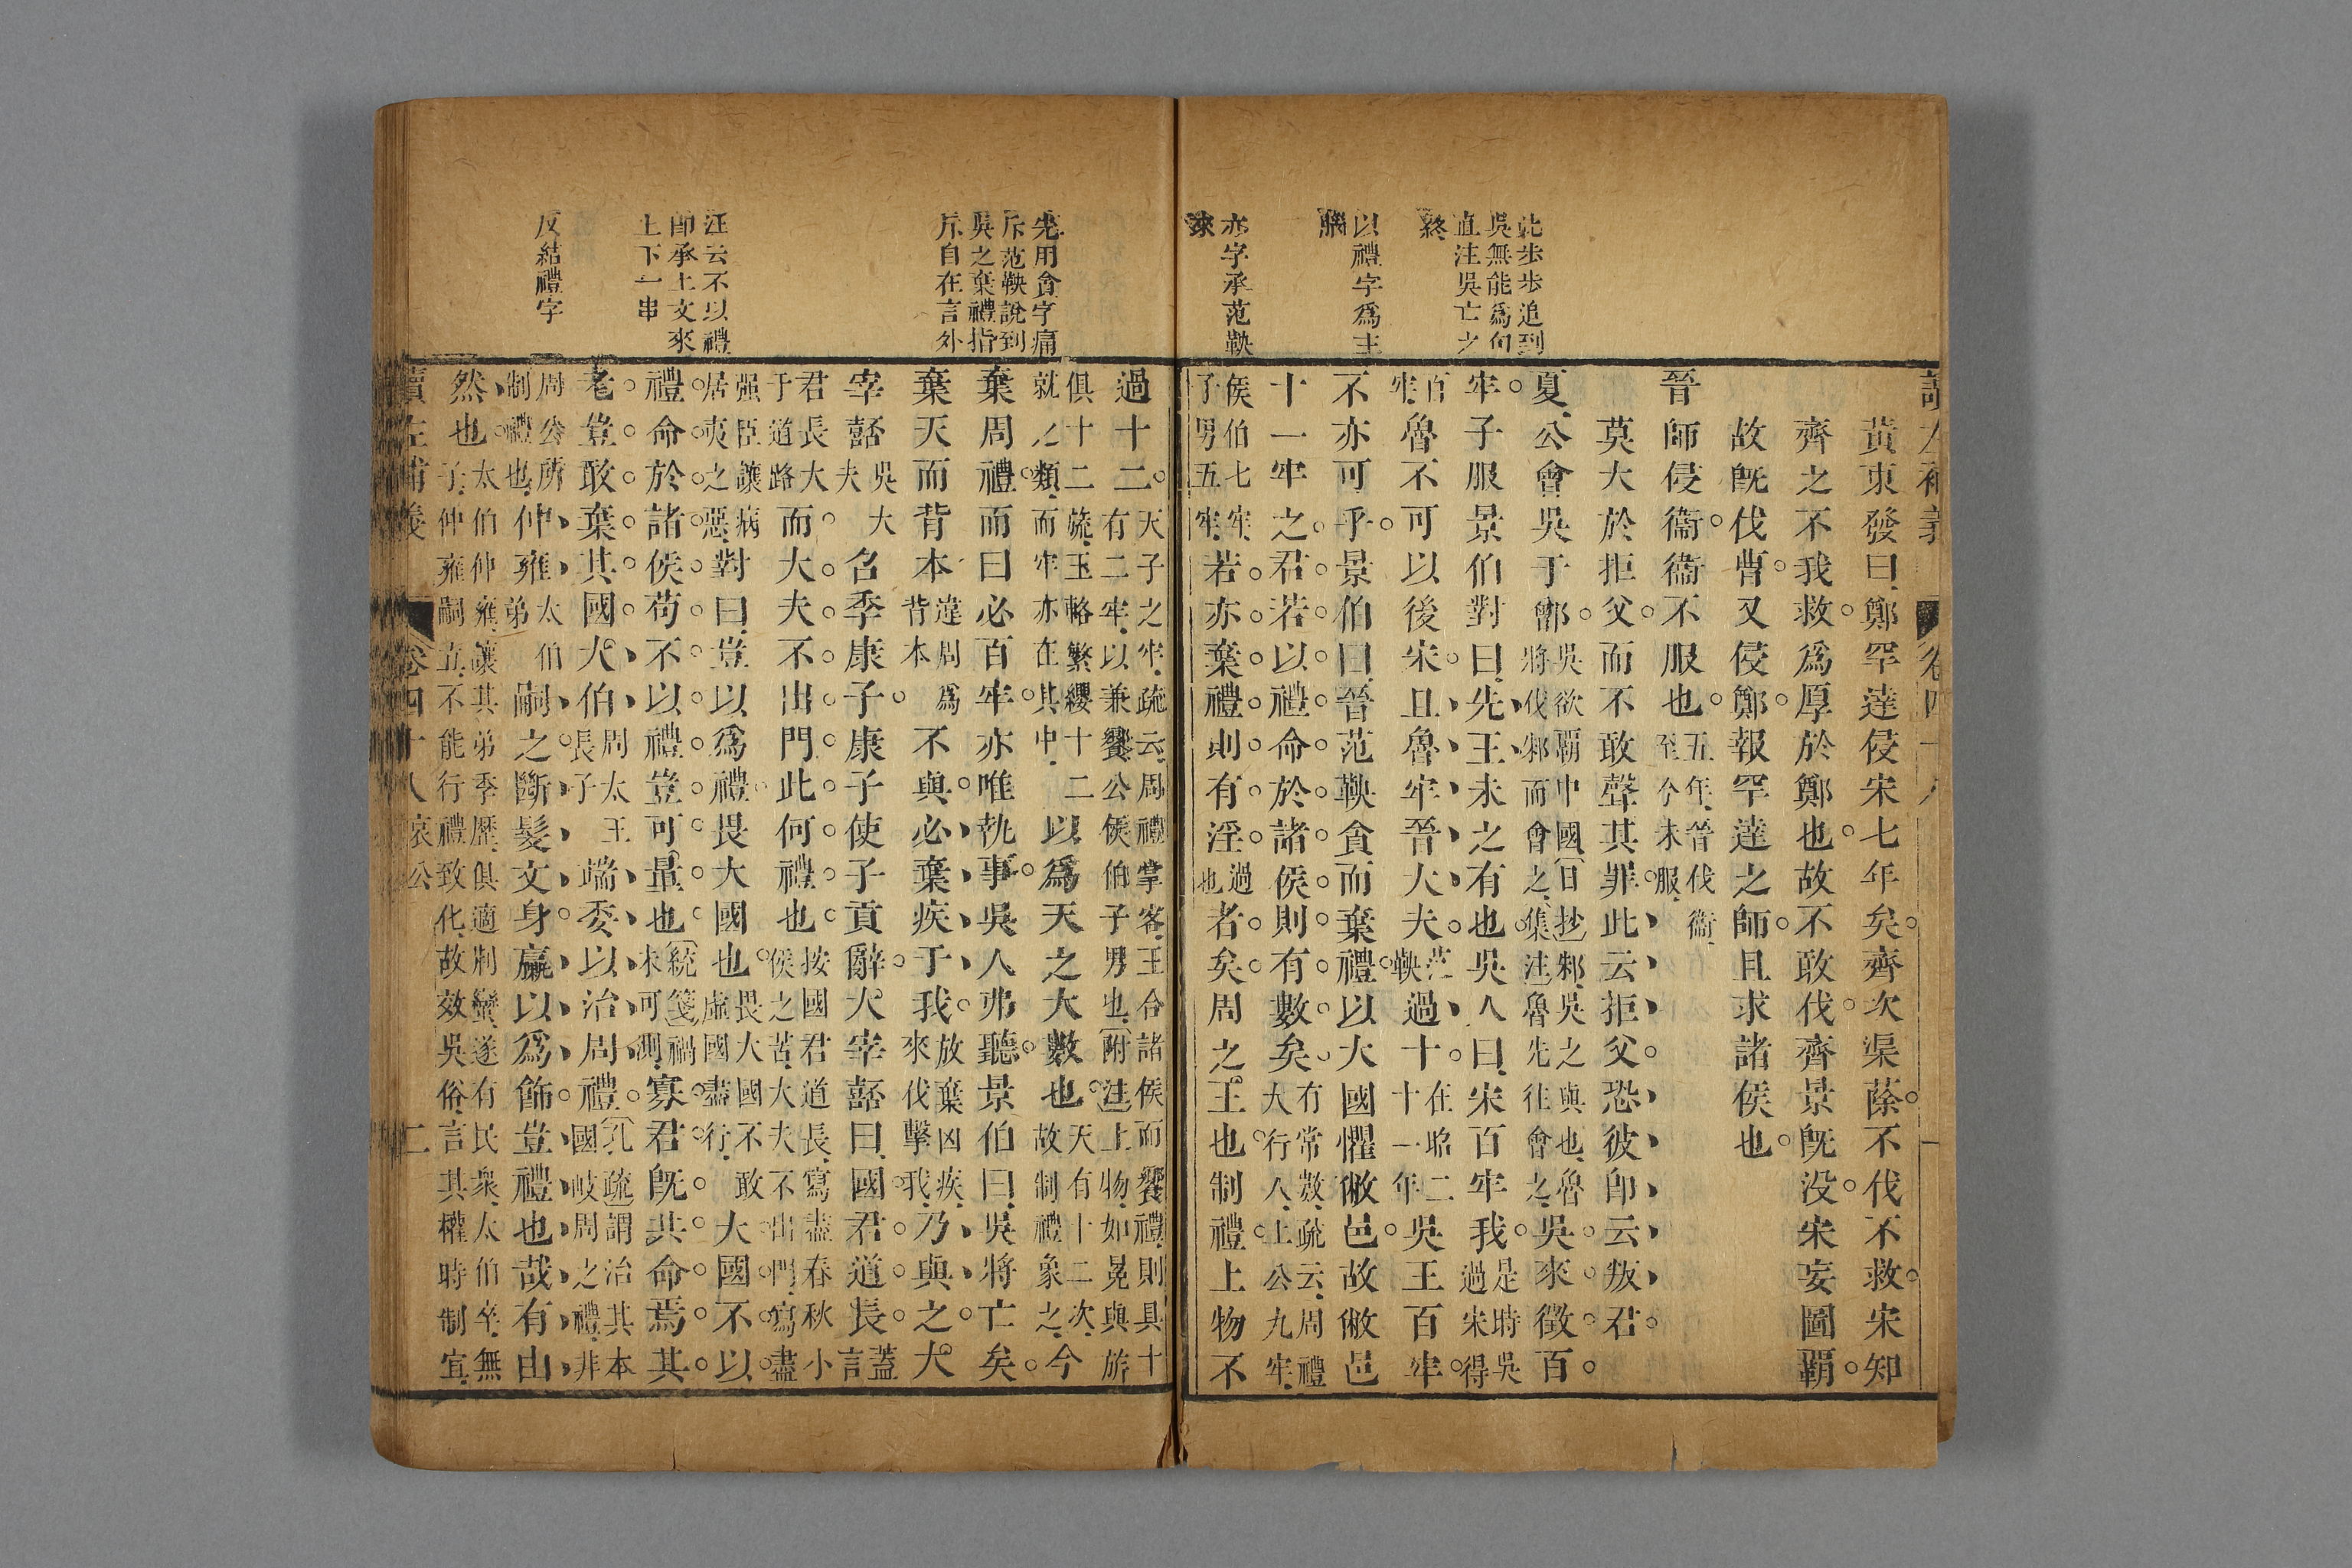 此步步追到
吳無能爲句
直注吳亡之
終
以禮字爲主
腦
亦字承范鞅
來
讀左補義　卷四十八　一
黃東發曰鄭罕達侵宋七年矣齊次渠蒢不伐不救宋知
齊之不我救爲厚於鄭也故不敢伐齊景旣没宋妄圖覇
故旣伐曹又侵鄭報罕達之師且求諸侯也
晉師侵衞衞不服也五年晉伐衞至今未服
莫大於拒父而不敢聲其罪此云拒父恐彼卽云叛君
夏公會吳于鄫吳欲覇中國將伐邾而會之(日抄)邾吳之與也魯(集注)魯先往會之吳來徵百
牢子服景伯對曰先王未之有也吳人曰宋百牢我是時吳過宋得
百牢魯不可以後宋且魯牢晉大夫范鞅過十在昭二十一年吳王百牢
不亦可乎景伯曰晉范鞅貪而棄禮以大國懼敝邑故敝邑
十一牢之君若以禮命於諸侯則有數矣有常數疏云周禮大行人上公九牢
侯伯七牢子男五牢若亦棄禮則有淫過也者矣周之王也制禮上物不
先用貪字痛
斥范鞅說到
吳之棄禮指
斥自在言外
汪云不以禮
卽承上文來
上下一串
反結禮字
過十二天子之牢疏云周禮掌客王合諸侯而饗禮則具十有二牢以兼饗公侯伯子男也(附注)上物如冕與旂
俱十二旒玉輅繁纓十二就之類而牢亦在其中以爲天之大數也天有十二次故制禮象之今
棄周禮而曰必百牢亦唯執事吳人弗聽景伯曰吳將亡矣
棄天而背本違周爲背本不與必棄疾于我放棄凶疾來伐擊我乃與之大
宰嚭吳大夫召季康子康子使子貢辭大宰嚭曰國君道長蓋言
君長大于道路而大夫不出門此何禮也按國君道長寫盡春秋小侯之苦大夫不出門寫盡
强臣讓病居夷之惡對曰豈以爲禮畏大國也畏大國不敢虛國盡行大國不以
禮命於諸侯苟不以禮豈可量也(統箋)禍未可測寡君旣共命焉其
老豈敢棄其國大伯周太王長子端委以治周禮(孔疏)謂治其本國岐周之禮非
周公所制禮也仲雍太伯弟嗣之斷髮文身臝以爲飾豈禮也哉有由
然也太伯仲雍讓其弟季歷俱適荆蠻遂有民衆太伯卒無子仲雍嗣立不能行禮致化故效吳俗言其權時制宜
讀左補義　卷四十八　哀公　二